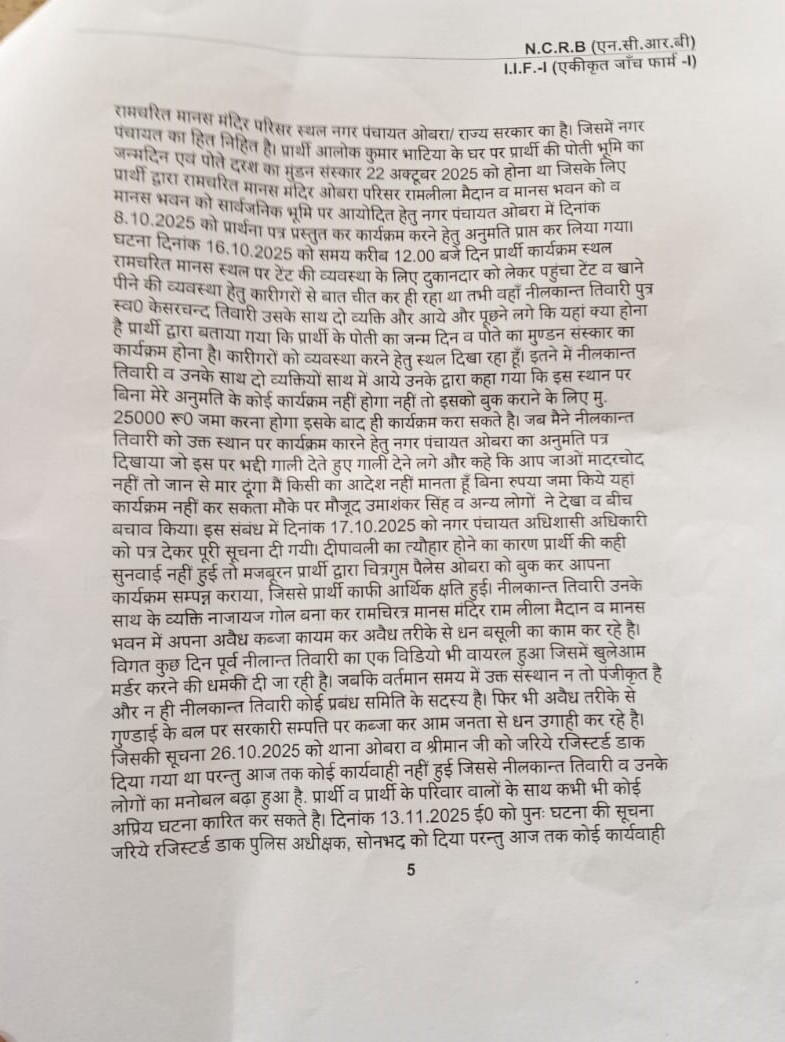 N.C.R.B (एन.सी.आर.बी)
I.I.F.-I (एकीकृत जाँच फार्म -I)
रामचरित मानस मंदिर परिसर स्थल नगर पंचायत ओबरा/ राज्य सरकार का है। जिसमें नगर
पंचायत का हित निहित है। प्रार्थी आलोक कुमार भाटिया के घर पर प्रार्थी की पोती भूमि का
जन्मदिन एवं पोते दरश का मुंडन संस्कार 22 अक्टूबर 2025 को होना था जिसके लिए
प्रार्थी द्वारा रामचरित मानस मंदिर ओबरा परिसर रामलीला मैदान व मानस भवन को व
मानस भवन को सार्वजनिक भूमि पर आयोदित हेतु नगर पंचायत ओबरा में दिनांक
8.10.2025 को प्रार्थना पत्र प्रस्तुत कर कार्यक्रम करने हेतु अनुमति प्राम कर लिया गया।
घटना दिनांक 16.10.2025 को समय करीब 12.00 बजे दिन प्रार्थी कार्यक्रम स्थल
रामचरित मानस स्थल पर टेंट की व्यवस्था के लिए दुकानदार को लेकर पहुंचा टेंट व खाने
पीने की व्यवस्था हेतु कारीगरों से बात चीत कर ही रहा था तभी वहाँ नीलकान्त तिवारी पुत्र
स्व0 केसरचन्द तिवारी उसके साथ दो व्यक्ति और आये और पूछने लगे कि यहां क्या होना
है प्रार्थी द्वारा बताया गया कि प्रार्थी के पोती का जन्म दिन व पोते का मुण्डन संस्कार का
कार्यक्रम होना है। कारीगरों को व्यवस्था करने हेतु स्थल दिखा रहा हूँ। इतने में नीलकान्त
तिवारी व उनके साथ दो व्यक्तियों साथ में आये उनके द्वारा कहा गया कि इस स्थान पर
बिना मेरे अनुमति के कोई कार्यक्रम नहीं होगा नहीं तो इसको बुक कराने के लिए मु.
25000 रू0 जमा करना होगा इसके बाद ही कार्यक्रम करा सकते है। जब मैने नीलकान्त
तिवारी को उक्त स्थान पर कार्यक्रम कारने हेतु नगर पंचायत ओबरा का अनुमति पत्र
दिखाया जो इस पर भद्दी गाली देते हुए गाली देने लगे और कहे कि आप जाओं मादरचोद
नहीं तो जान से मार दूंगा मैं किसी का आदेश नहीं मानता हूँ बिना रुपया जमा किये यहां
कार्यक्रम नहीं कर सकता मौके पर मौजूद उमाशंकर सिंह व अन्य लोगों ने देखा व बीच
बचाव किया। इस संबंध में दिनांक 17.10.2025 को नगर पंचायत अधिशासी अधिकारी
को पत्र देकर पूरी सूचना दी गयी। दीपावली का त्यौहार होने का कारण प्रार्थी की कही
सुनवाई नहीं हुई तो मजबूरन प्रार्थी द्वारा चित्रगुप्त पैलेस ओबरा को बुक कर आपना
कार्यक्रम सम्पन्न कराया, जिससे प्रार्थी काफी आर्थिक क्षति हुई। नीलकान्त तिवारी उनके
साथ के व्यक्ति नाजायज गोल बना कर रामचिरत्र मानस मंदिर राम लीला मैदान व मानस
भवन में अपना अवैध कब्जा कायम कर अवैध तरीके से धन बसूली का काम कर रहे है।
विगत कुछ दिन पूर्व नीलान्त तिवारी का एक विडियो भी वायरल हुआ जिसमें खुलेआम
मर्डर करने की धमकी दी जा रही है। जबकि वर्तमान समय में उक्त संस्थान न तो पंजीकृत है
और न ही नीलकान्त तिवारी कोई प्रबंध समिति के सदस्य है। फिर भी अवैध तरीके से
गुण्डाई के बल पर सरकारी सम्पत्ति पर कब्जा कर आम जनता से धन उगाही कर रहे है।
जिसकी सूचना 26.10.2025 को थाना ओबरा व श्रीमान जी को जरिये रजिस्टर्ड डाक
दिया गया था परन्तु आज तक कोई कार्यवाही नहीं हुई जिससे नीलकान्त तिवारी व उनके
लोगों का मनोबल बढ़ा हुआ है. प्रार्थी व प्रार्थी के परिवार वालों के साथ कभी भी कोई
अप्रिय घटना कारित कर सकते है। दिनांक 13.11.2025 ई0 को पुनः घटना की सूचना
जरिये रजिस्टर्ड डाक पुलिस अधीक्षक, सोनभद्र को दिया परन्तु आज तक कोई कार्यवाही
5